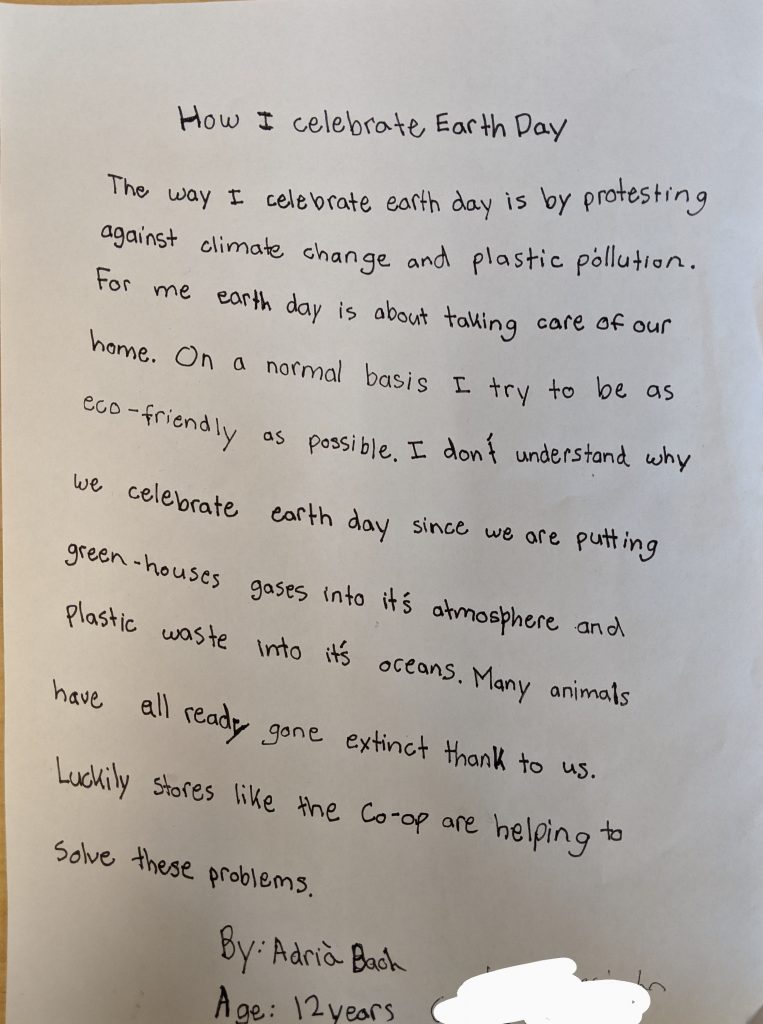 How I celebrate Earth Day
The way I celebrate earth day is by protesting
against climate change and plastic pollution.
For me earth day is about taking care of our
home. On a normal basis I try to be as
eco-friendly as possible. I don't understand why
we celebrate earth day since we are putting
green-houses gases into it's atmosphere and
plastic waste into it's oceans. Many animals
have all ready gone extinct thank to us.
Luckily stores like the Co-op are helping to
solve these problems.
By: Adrià Bach
Age: 12 years